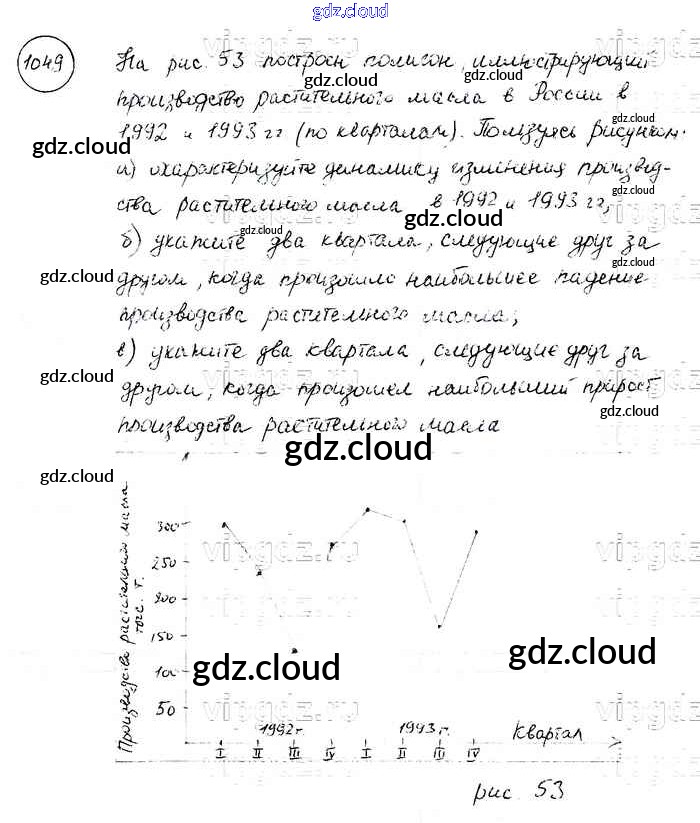 gdz.cloud
1049
На рис. 53 построен полигон, иллюстрирующий
gdz.cloud
производство растительного масла в России в
1992 и 1993 гг (по кварталам). Пользуясь рисунком:
gdz.cloud
а) охарактеризуйте динамику изменения производ-
ства растительного масла в 1992 и 1993 гг;
gdz.cloud
б) укажите два квартала, следующие друг за
другом, когда произошло наибольшее падение
gdz.cloud
производства растительного масла;
в) укажите два квартала, следующие друг за
gdz.cloud
другом, когда произошел наибольший прирост
производства растительного масла
gdz.cloud
gdz.cloud
Производство растительного масла
тыс. т.
300
250
200
150
100
50
vipgdz.ru
gdz.cloud
gdz.cloud
1992 г. 1993 г. Квартал
I II III IV I II III IV
рис. 53